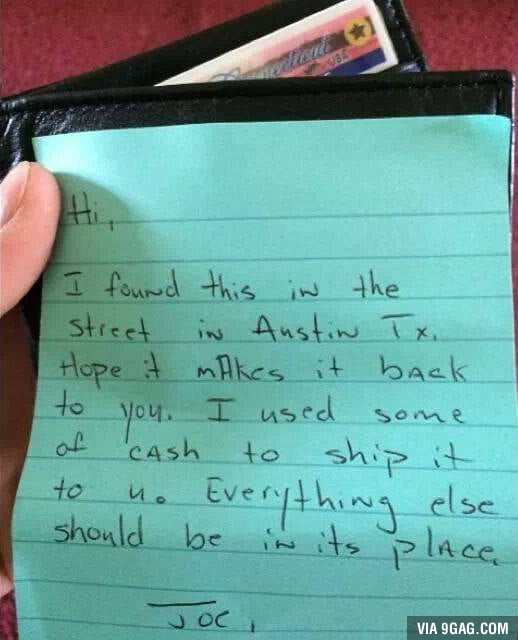 Connecticut
USA
Hi,
I found this in the
street in Austin Tx.
Hope it makes it back
to you. I used some
of cash to ship it
to u. Everything else
should be in its place.
Joe,
VIA 9GAG.COM